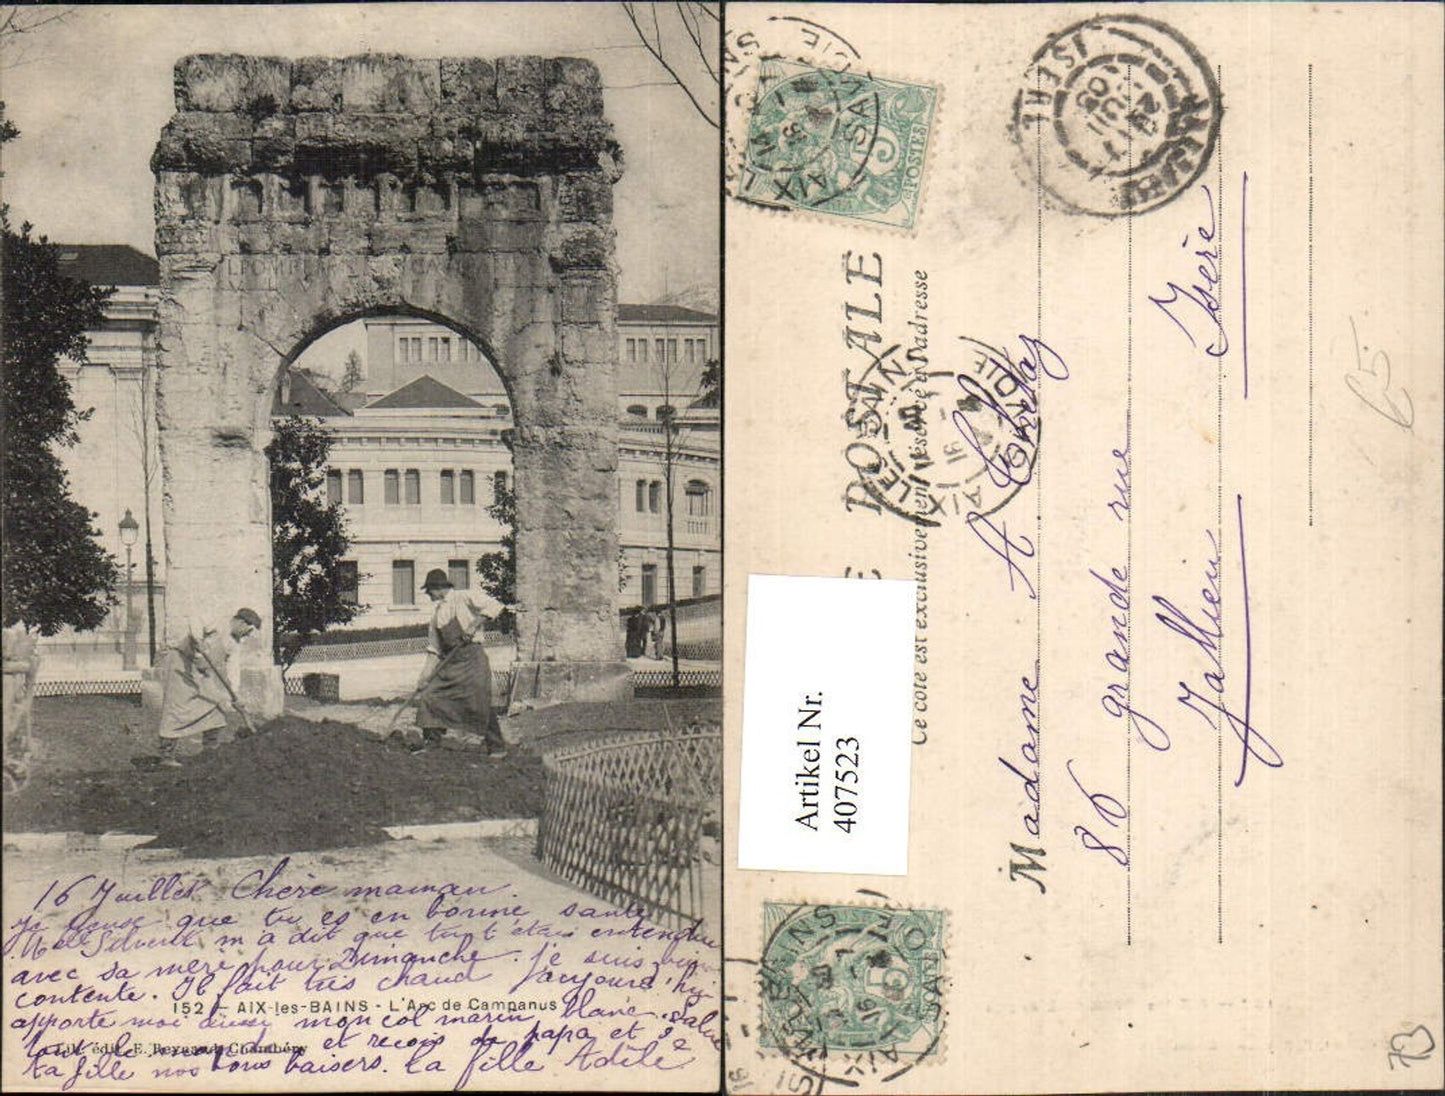 16 Juillet Chère maman
Je pense que tu es en bonne santé
Melle Silvent m'a dit que tu t'étais entendue
avec sa mère pour Dimanche. je suis bien
contente. Il fait très chaud aujourd'hui
apporte moi aussi mon col marin blanc. Salue
tout le monde et reçois de papa et de
ta fille nos bons baisers. ta fille Adèle
152 - AIX-les-BAINS - L'Arc de Campanus
édit. E. Reynaud, Chambéry
POSTALE
Ce côté est exclusivement réservé à l'adresse
Madame A Chetaz
86 grande rue
Jallieu Isère
Artikel Nr.
407523
POSTES
5
AIX LES BAINS
SAVOIE
ISÈRE
65
73